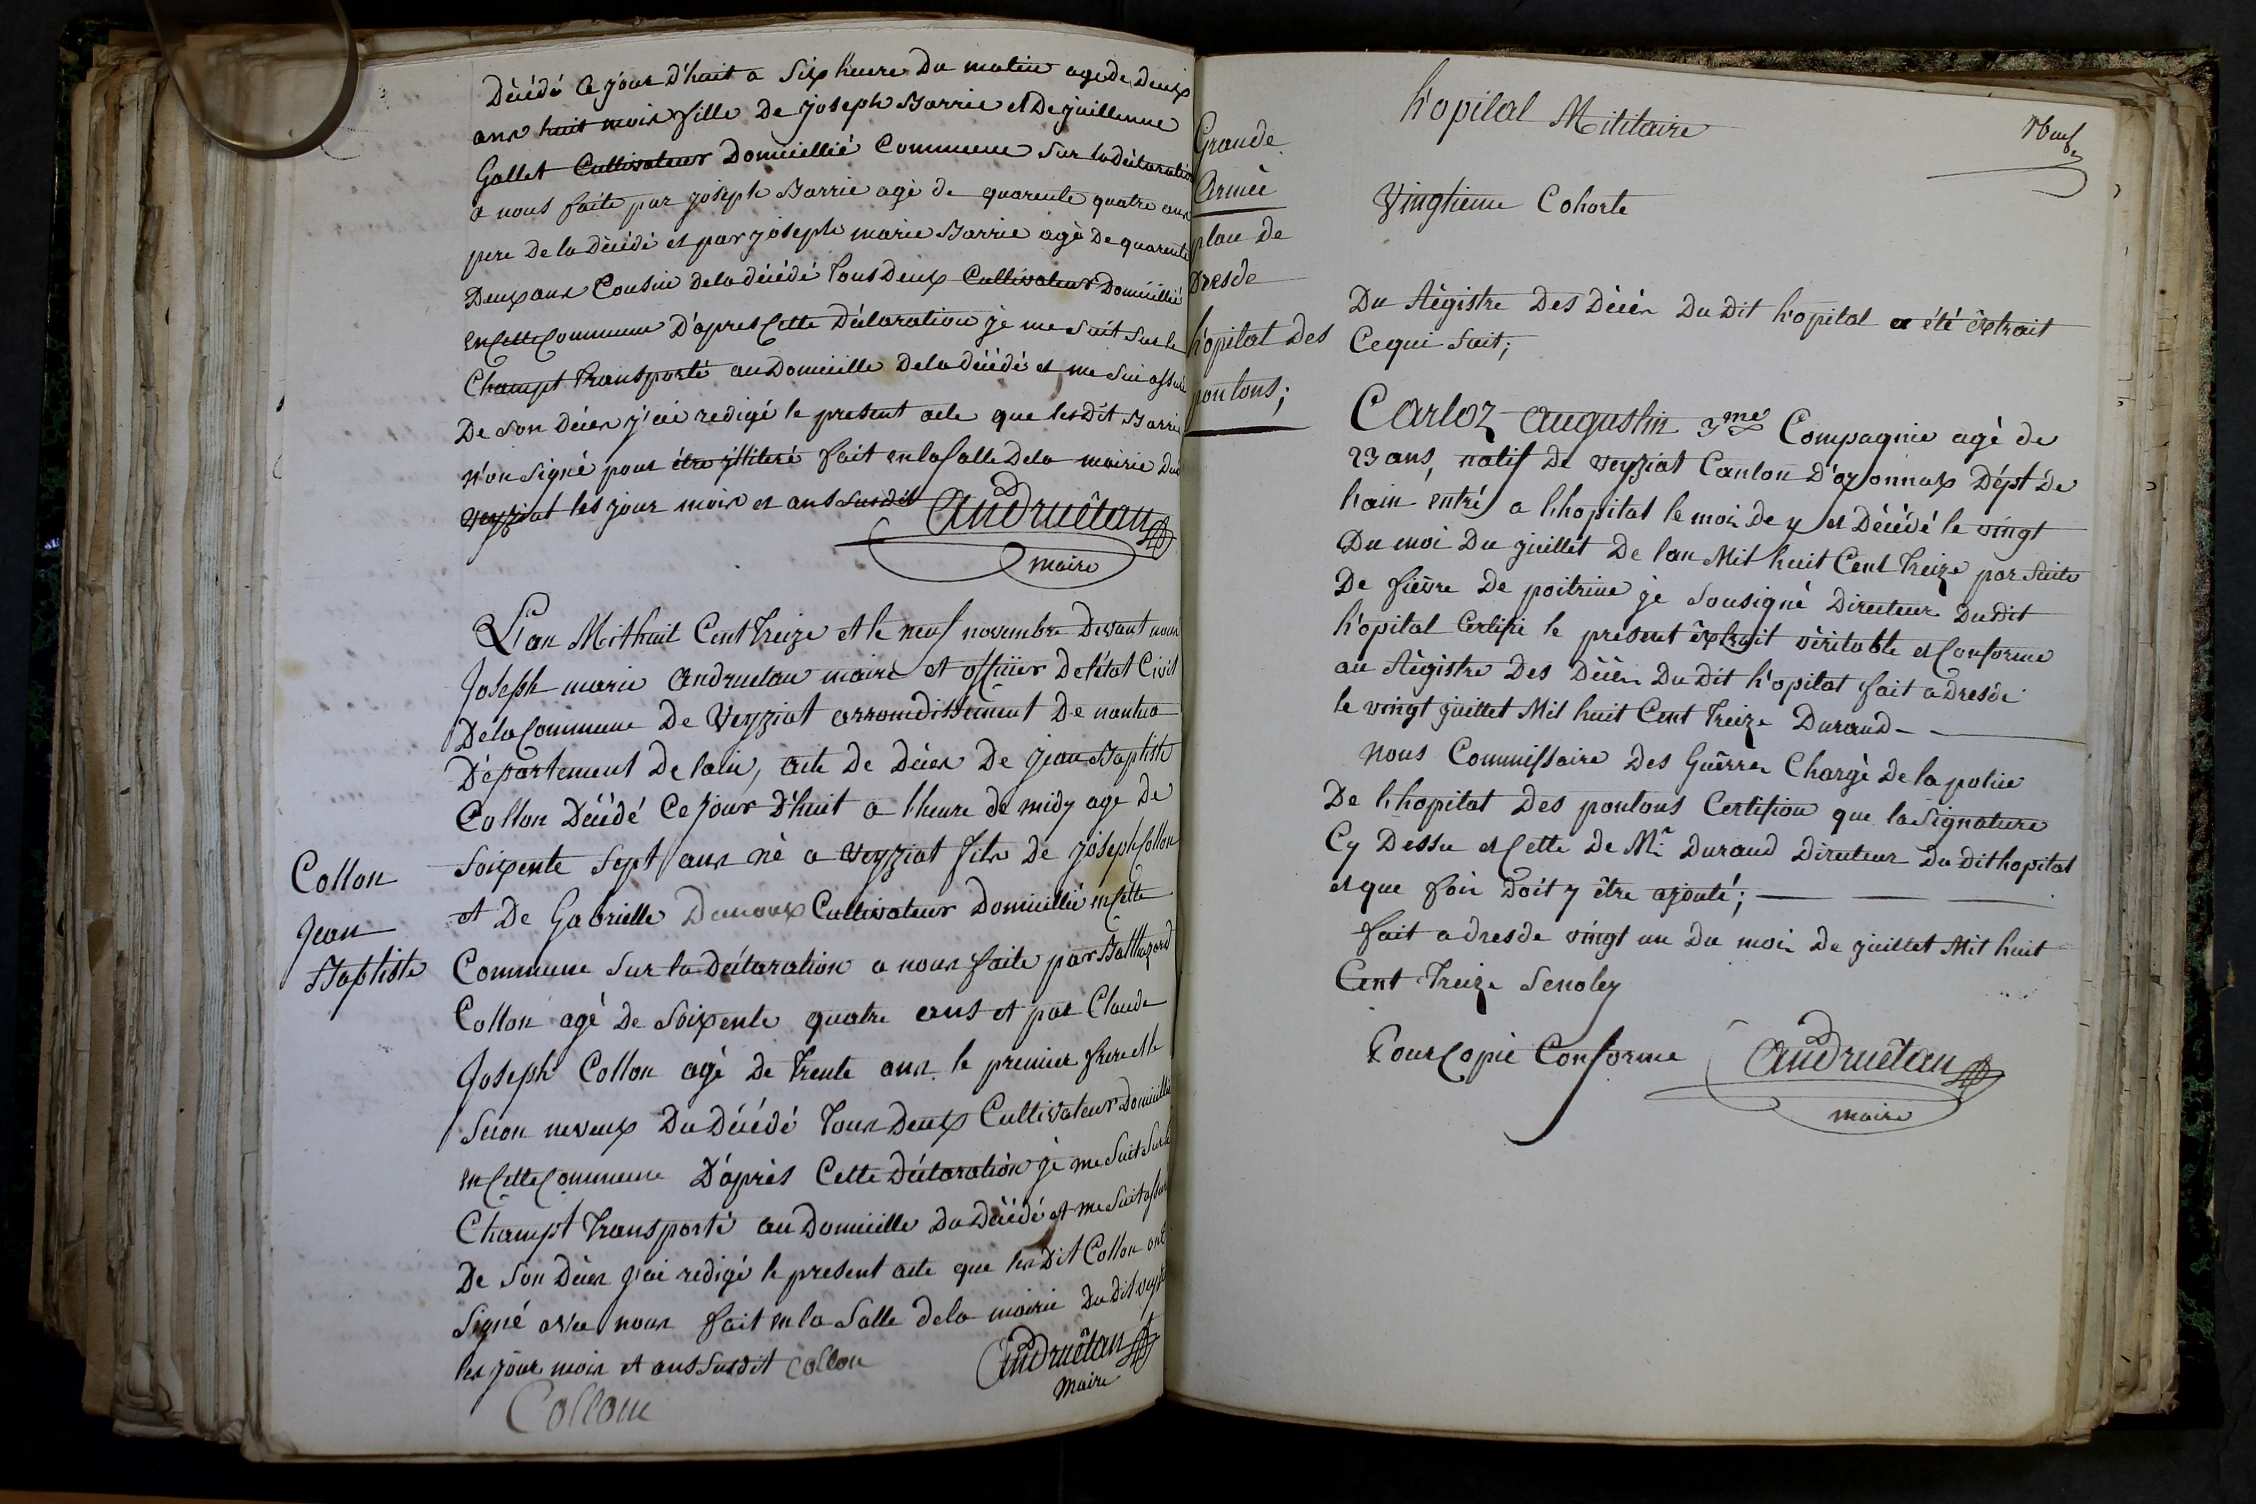 Décédé ce jour d'huit a six heure du matin agé de deux
ans huit mois fille de joseph Barrie et De juillenne
Gallet Cultivateur Domicillié Commune sur la déclaration
a nous faite par joseph Barrie agé de quarente quatre ans
pere de la décédé et par joseph marie Barrie agé de quarente
Deux ans Cousin de la décédé tous Deux Cultivateur Domicillié
en Cette Commune D'apres Cette Déclaration je me suit sur le
Champt transporté au Domicille de la décédé et me suis assuré
De son décès j'ai redigé le present acte que les dit Barrie
n'on signé pour être illiteré fait en la salle de la mairie dud
veyziat les jour mois et ans susdit Andruétan
maire
L'an Mil huit Cent treize et le neuf novembre Devant nous
Joseph marie Andruetan maire et officier de l'état Civil
De la Commune de Veyziat arromdissement De nantua
Département de l'ain, acte de décès de jean Baptiste
Collon Décédé Ce jour d'huit a l'heure de midy age de
soixente sept ans né a veyziat fils de joseph Collon
et De Gabrielle Cultivateur Domicillié en Cette
Commune sur la Déclaration a nous faite par Balthazard
Collon agé de soixente quatre ans et par Claude
Joseph Collon agé de trente ans le premier frere et le
neveux Du Décédé tous Deux Cultivateur Domicillié
en Cette Commune D'après Cette Déclaration je me suit sur le
Champt transporté au Domicille du Décédé et me suit assuré
De son Décès j'ai redigé le present acte que les Dit Collon ont
signé avec nous fait en la salle de la mairie du dit veyziat
les jour mois et ans susdit Collon Andruétan
maire
Collon
Collon
Jean
Baptiste
Grande
Armée
place de
Dresde
h'opital des
pontons;
h'opital Militaire
Vingtieme Cohorte
Du Régistre Des Décès Du Dit h'opital a été êxtrait
Ce qui suit;
Carloz augustin 3me Compagnie agé de
23 ans, natif de veyziat Canton D'oyonnax Dépt de
hain entré a l'hopital le moi de y et Décédé le vingt
Du moi Du juillet De l'an Mil huit Cent treize par suite
De fiévre de poitrine je sousigné Directeur Du Dit
h'opital Certifie le present êxtrait véritable et Conforme
au Régistre Des Décès Du Dit h'opital fait a dresde
le vingt juillet Mil huit Cent treize Durand
Nous Commissaire Des Guêrres Chargé de la police
De l'hopital Des pontons Certifion que la signature
Cy Dessu et Celle de Mr Durand Directeur Du dit hopital
et que foi doit y être ajouté;
fait a dresde vingt un du moi de juillet Mil huit
Cent treize Senoley
Pour Copie Conforme Andruétan
maire